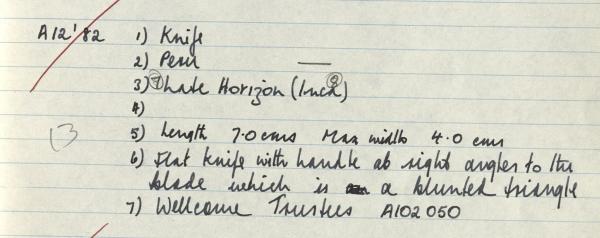 A12'82 1) Knife
2) Peru
3) ? Late Horizon (Inca?)
4)
13 5) Length 7.0 cms Max width 4.0 cms
6) Flat knife with handle at right angles to the
blade which is a blunted triangle
7) Wellcome Trustees A102050